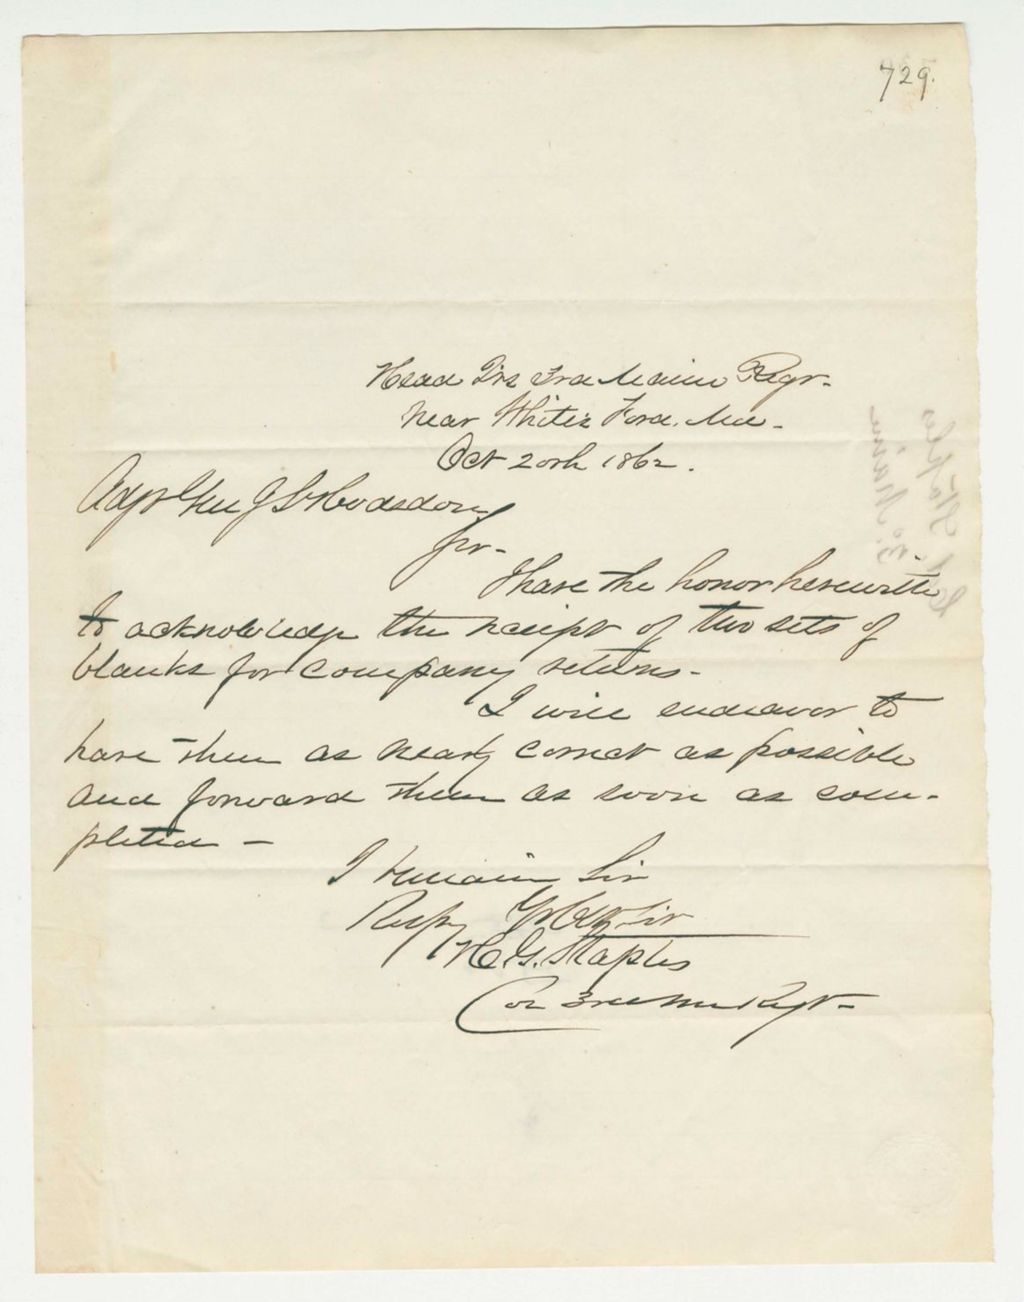 729.
Head Qrs 3rd Maine Regt-
Near White's Ford. Md-
Oct 20th 1862.
Adjt Gen J L Hodsdon
Sir-
I have the honor herewith
to acknowledge the receipt of two sets of
blanks for company returns-
I will endeavor to
have them as nearly correct as possible
and forward them as soon as com-
pleted -
I remain Sir
Respy Yr Obt Svr
H G. Staples
Col 3rd Me Regt-
Col. Staples
3d Maine